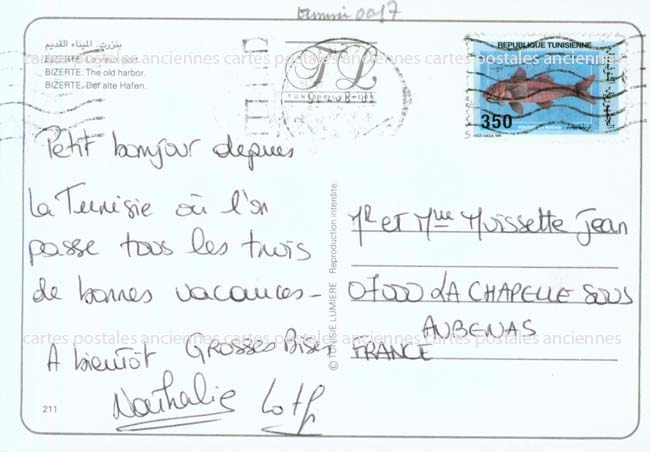 tunisi 0017
بنزرت. الميناء القديم
BIZERTE. Le vieux port.
BIZERTE. The old harbor.
BIZERTE. Der alte Hafen.
TL
REPUBLIQUE TUNISIENNE
350
cartes postales anciennes cartes postales anciennes cartes postales anciennes cartes postales anciennes
Petit bonjour depuis
la Tunisie où l'on
passe tous les trois
de bonnes vacances -
A bientôt GROSSES Bises
Nathalie Lotfi
211
© TUNISIE LUMIERE Reproduction interdite
Mr et Mme Moissette Jean
07000 LA CHAPELLE SOUS
AUBENAS
FRANCE
cartes postales anciennes cartes postales anciennes cartes postales anciennes cartes postales anciennes